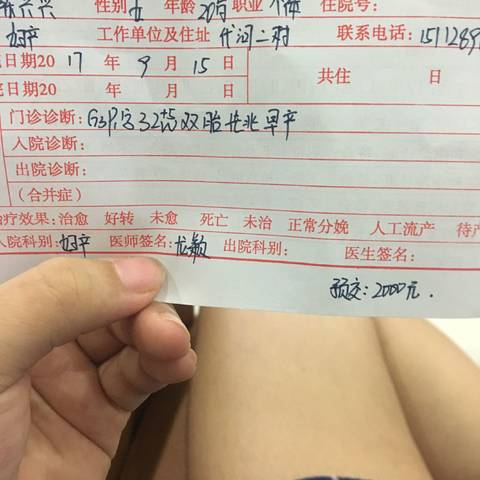 性别 女 年龄 20岁 职业 个体 住院号:
妇产 工作单位及住址 联系电话: 151128
日期20 17 年 9 月 15 日 共住 日
日期20 年 月 日
门诊诊断: G3P 孕32+ 双胎 先兆早产
入院诊断:
出院诊断:
(合并症)
治疗效果: 治愈 好转 未愈 死亡 未治 正常分娩 人工流产 待产
入院科别: 妇产 医师签名: 出院科别: 医生签名:
预交: 2000元.